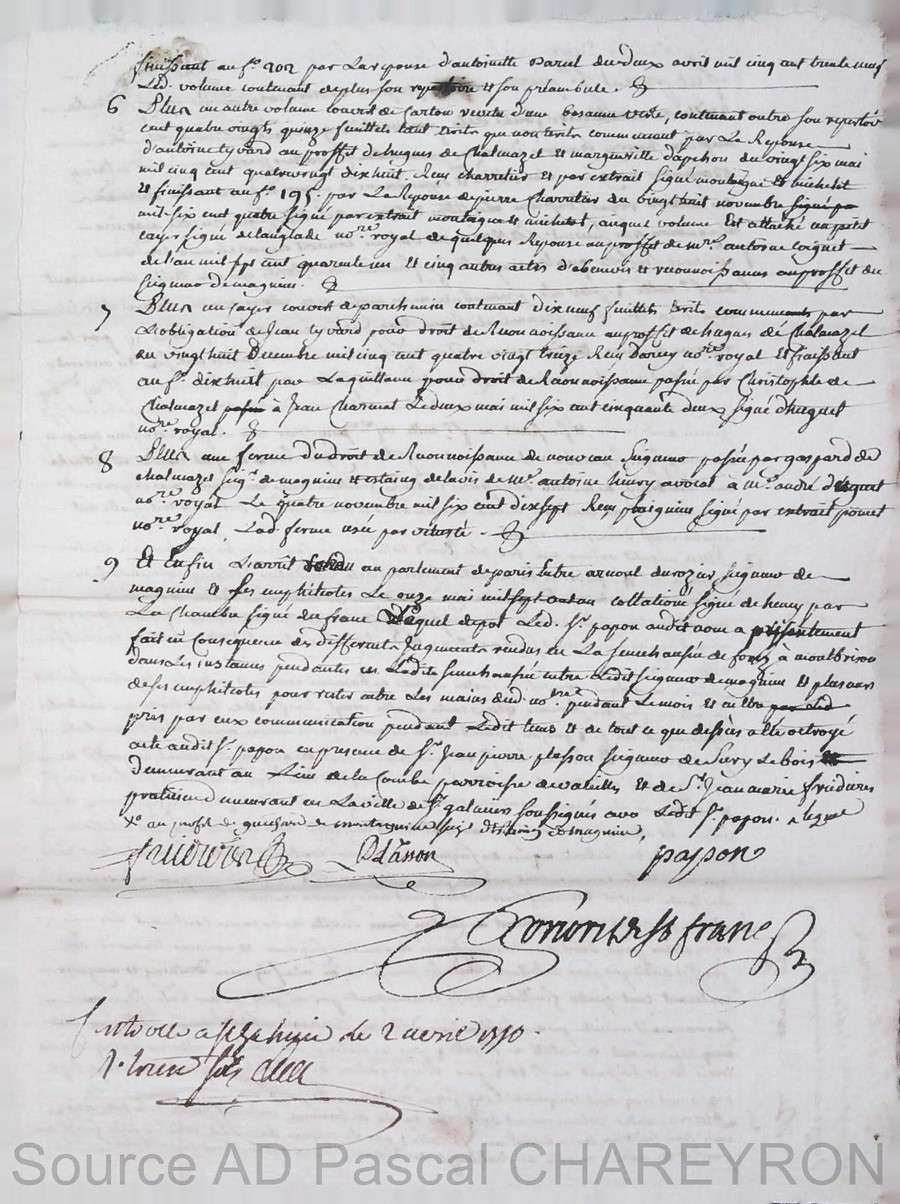 finissant au f.º 202 par La reponse d'antoinette Parcel du deux avril mil cinq cent trente neuf
Led. volume contenant de plus son repertoire et son préambule.
6 Plus un autre volume couvert de Carton revetu d'une basanne verte, contenant outre son repertoire
cent quatre vingts quinze feuillets tant Ecrits que non Ecrits commencant par La Reponse
d'antoine tyvard au proffit de hugues de Chalmazel et margueritte dapchon du vingt six mai
mil cinq cent quatrevingt dixhuit. Reçu charretier et par extrait signé montaigne et michelet
et finissant au f.º 195. par La Reponse de pierre Charretier du vingt huit novembre signé pa
mil six cent quatre signé par extrait montaigne et michelet, auquel volume Est attaché un petit
cayer signé de Langlade no.re royal de quelques Reponse au proffit de m.re antoine Coignet
de l'an mil cent quarente un et cinq autres actes d'abenevis et reconnoissances au proffet du
seigneur de magnieu.
7 Plus un cayer couvert de parchemin contenant dix neuf feuillets Ecrits commencants par
L'obligation de Jean tyvard pour droit de Reconnoissance au proffit de hugues de Chalmazel
du vingt huit Decembre mil cinq cent quatre vingt treize Reçu no.re royal et finissant
au f.º dixhuit par La quittance pour droit de Reconnoissance passée par Christophle de
Chalmazel passée à Jean Charmet Le deux mai mil six cent cinquante deux signé d'huguet
no.re royal.
8 Plus une ferme du droit de Reconnoissance de nouveau seigneur passée par gaspard de
chalmazel seig.r de magnieu et estaing de lavis de M.e antoine henry avocat à m.e andré
no.re royal Le quatre novembre mil six cent dixsept Reçu signé par extrait
no.re royal, Lad. ferme usée par vetusté.
9 Et Enfin L'arrêt Rendu au parlement de paris Entre arnoul durozier seigneur de
magnieu et ses emphitéotes Le onze mai mil sept cent collationé signé de henry par
La Chambre signé du franc Lequel depot Led. S.r papon audit nom a présentement
fait en Consequence des differents Jugements rendus en La senechaussée de forez à montbrison
dans Les instances pendantes en Ladite senechaussée entre Ledit seigneur de magnieu et plusieurs
de ses emphiteotes pour rester entre Les mains dud. no.re pendant Le mois et en être par Led
pris par eux communication pendant Ledit tems et de tout ce que dessus a été octroyé
acte audit S.r papon en presence de S.r Jean pierre plasson seigneur de Sury Lebois
demeurant au Lieu de La Combe parroisse de valeilles et de S.r Jean marie
praticien demeurant en La ville de S.t galmier soussignés avec Ledit S.r papon.
X.º au profit de de montagne seig. d'Estaing et magnieu.
Plasson
papon
franc
Controllé a le 2 avril 1770.